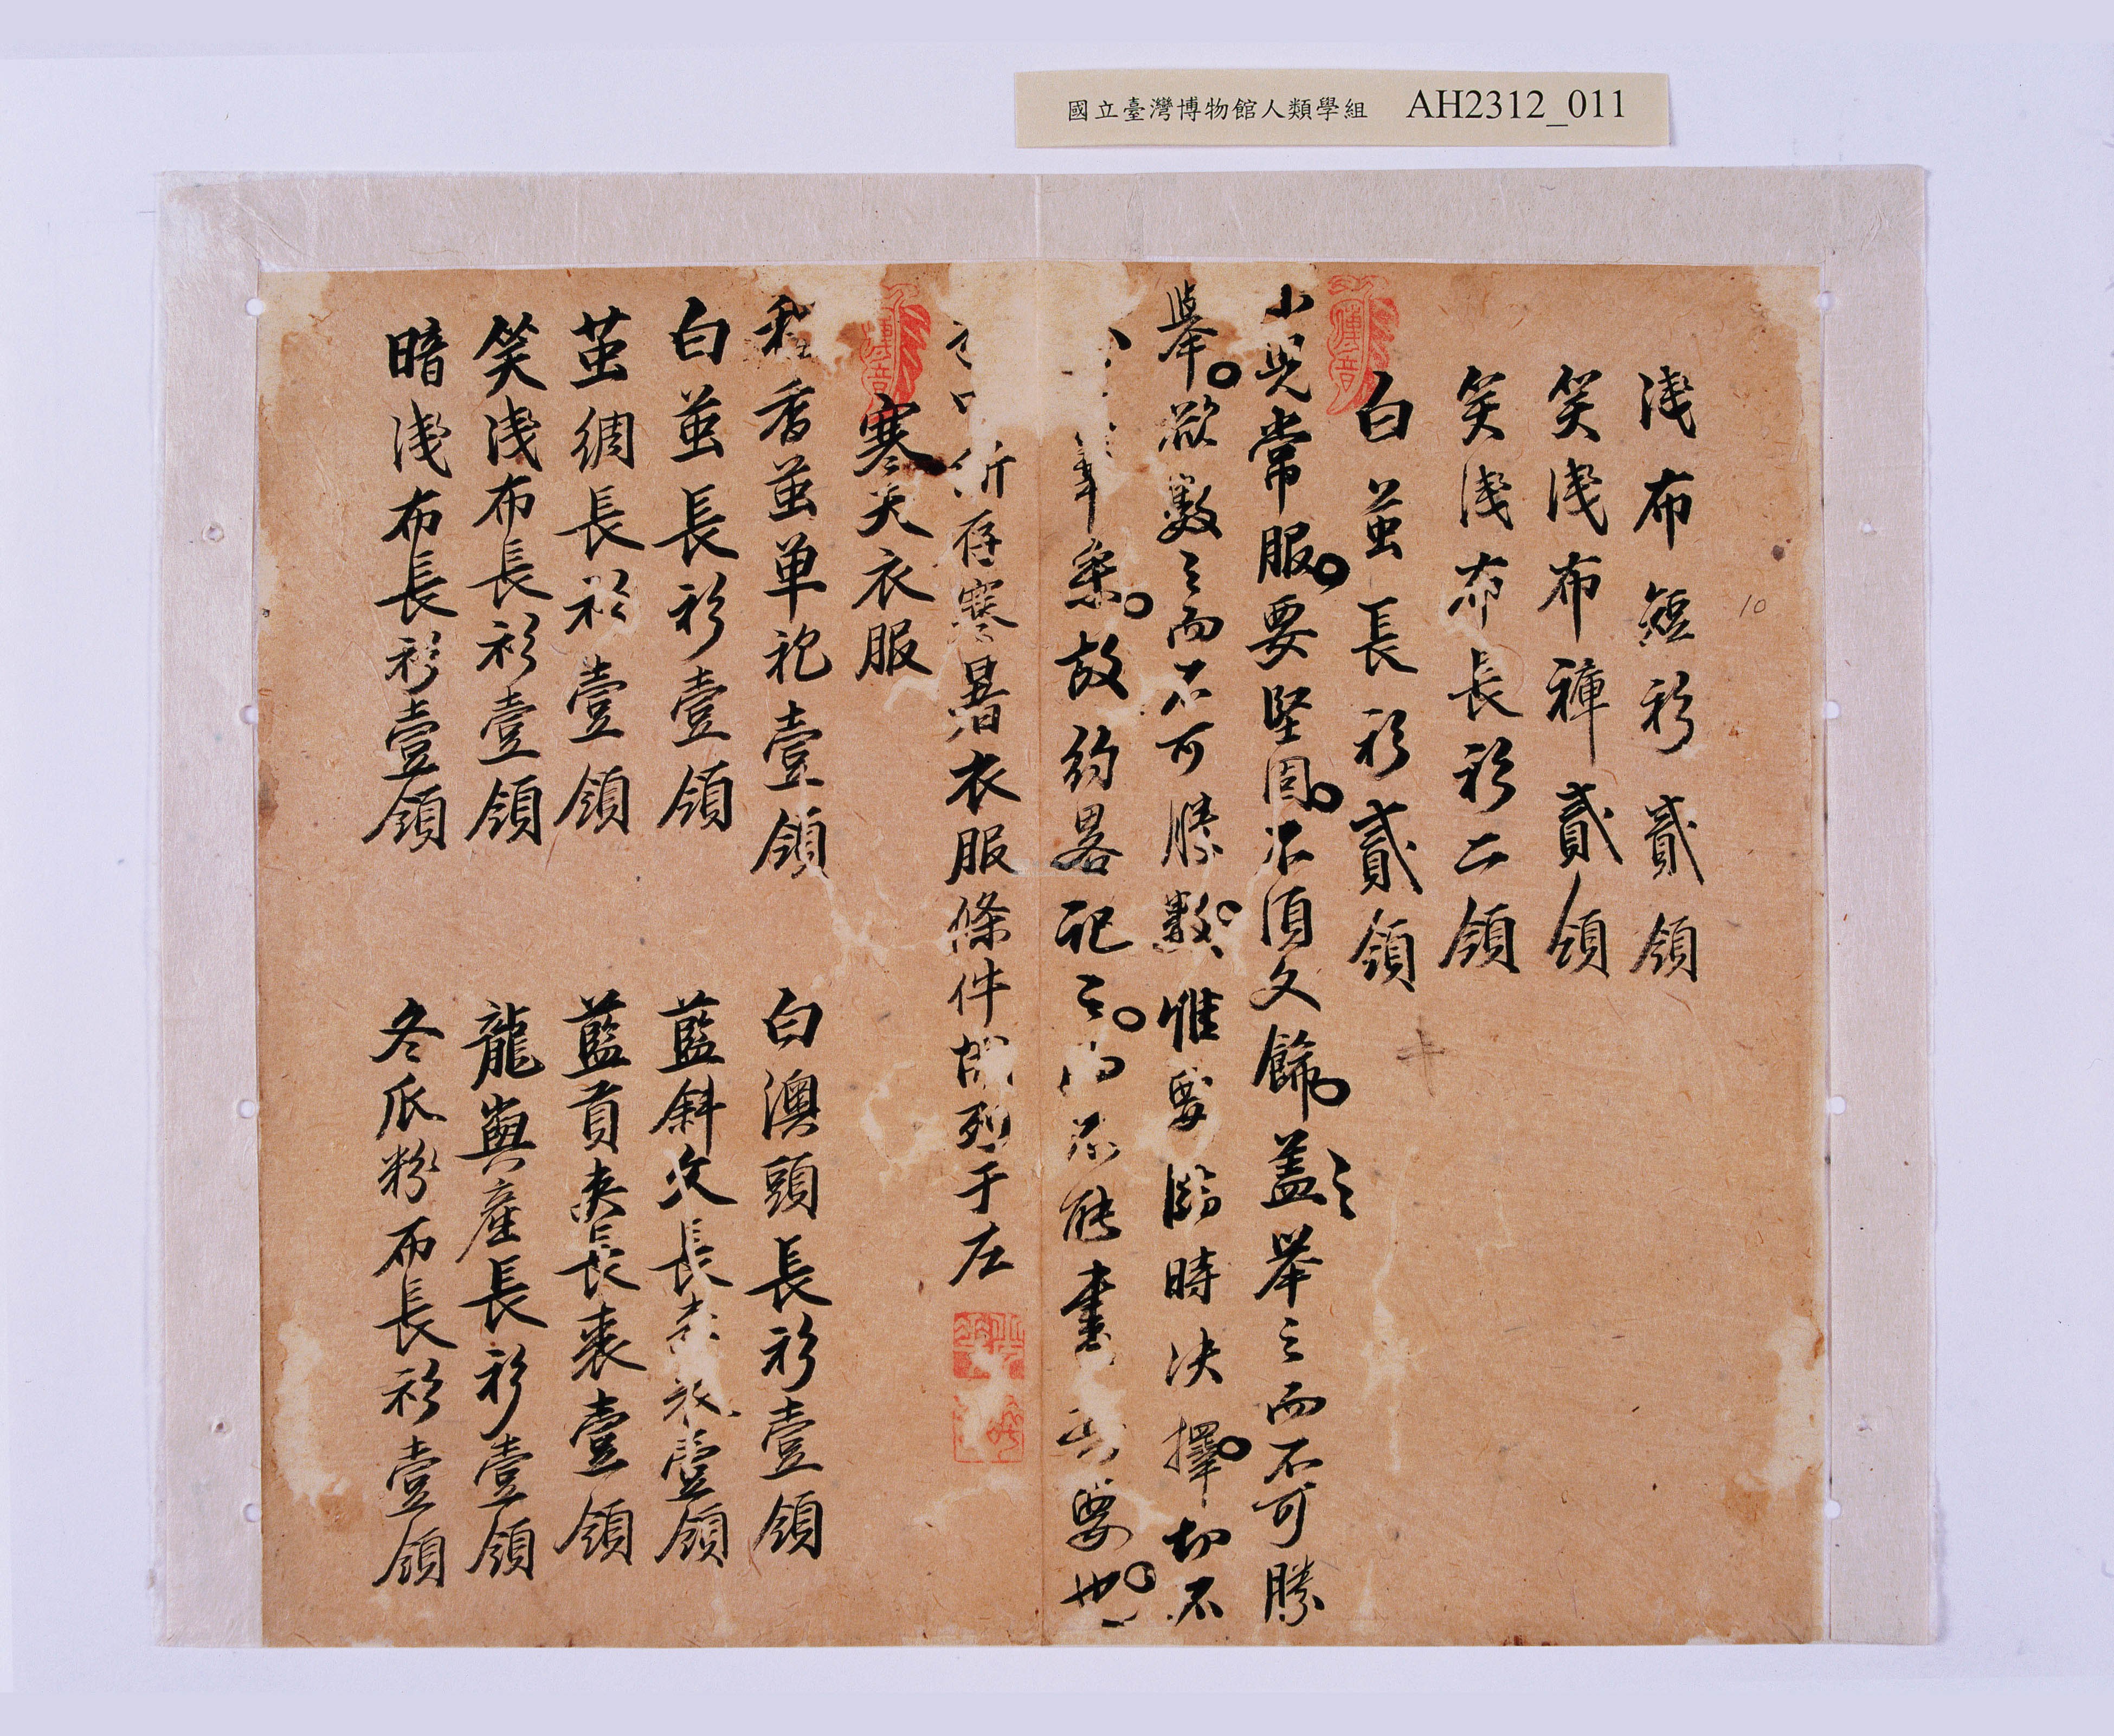 國立臺灣博物館人類學組 AH2312_011
10
浅布短衫貳領
笑浅布褲貳領
笑浅布長衫二領
白茧長衫貳領
小児常服。要堅固。不須文飾。盖舉之而不可勝
舉。欲數之而不可勝數。惟要臨時决擇。切不
筆案。故約畧記之。不能書要也。
所存寒暑衣服條件列于左
寒天衣服
香茧单袍壹領 白澳頭長衫壹領
白茧長衫壹領 藍斜文長壹領
茧綢長衫壹領 藍貢夹長裘壹領
笑浅布長衫壹領 龍與產長衫壹領
暗浅布長衫壹領 冬瓜粉布長衫壹領